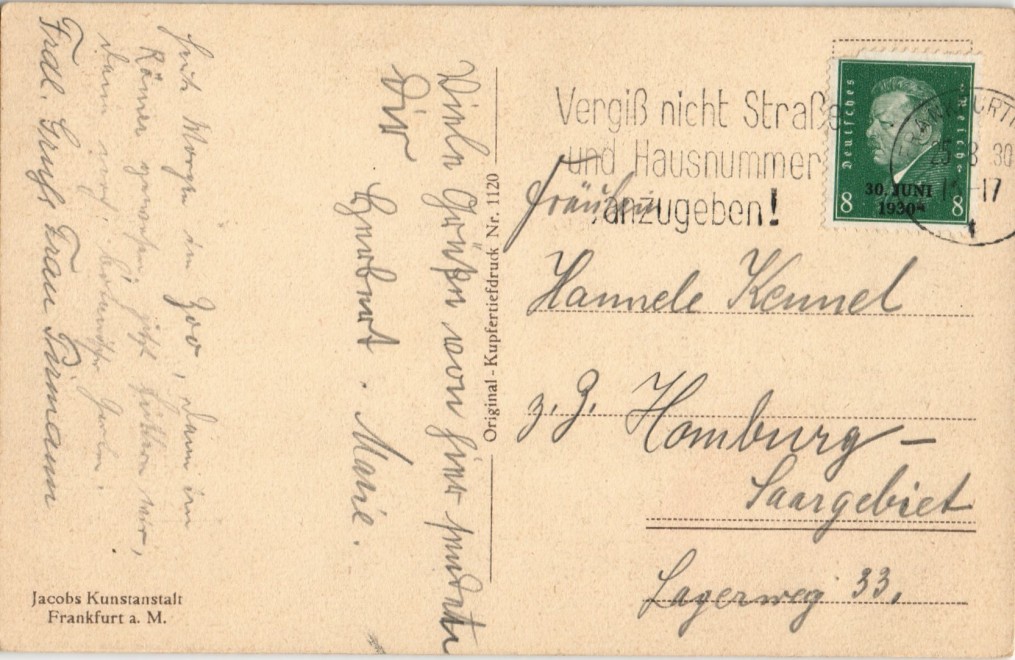 Viele Grüße von hier sendet
Dir
Herbert. Marie.
Heute Morgen im Zoo, dann im
Römer gewesen, jetzt sitzen wir,
dann noch
Frdl. Gruß Frau Firmann
Original-Kupfertiefdruck Nr. 1120
Jacobs Kunstanstalt
Frankfurt a. M.
Vergiß nicht Straße
und Hausnummer
anzugeben!
Deutsches Reich
30. JUNI
1930
8 8
FRANKFURT
25.8.30
17
Fräulein
Hannele Kennel
z. Z. Homburg –
Saargebiet
Lagerweg 33.